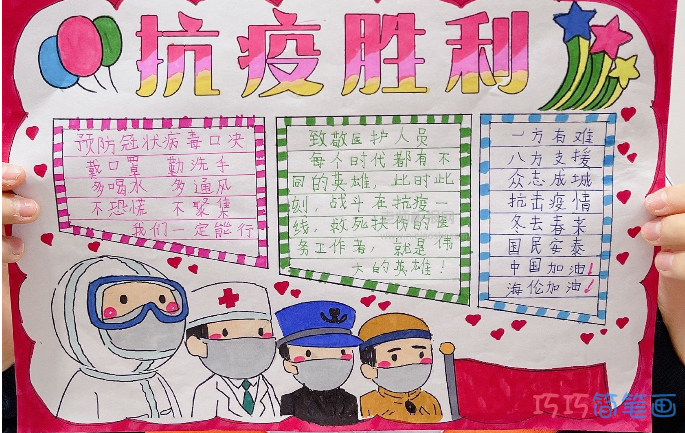 抗疫胜利
预防冠状病毒口决
戴口罩 勤洗手
多喝水 多通风
不恐慌 不聚集
我们一定能行
致敬医护人员
每个时代都有不
同的英雄,此时此
刻,战斗在抗疫一
线,救死扶伤的医
务工作者,就是伟
大的英雄!
一方有难
八方支援
众志成城
抗击疫情
冬去春来
国民安泰
中国加油!
海伦加油!
巧巧简笔画